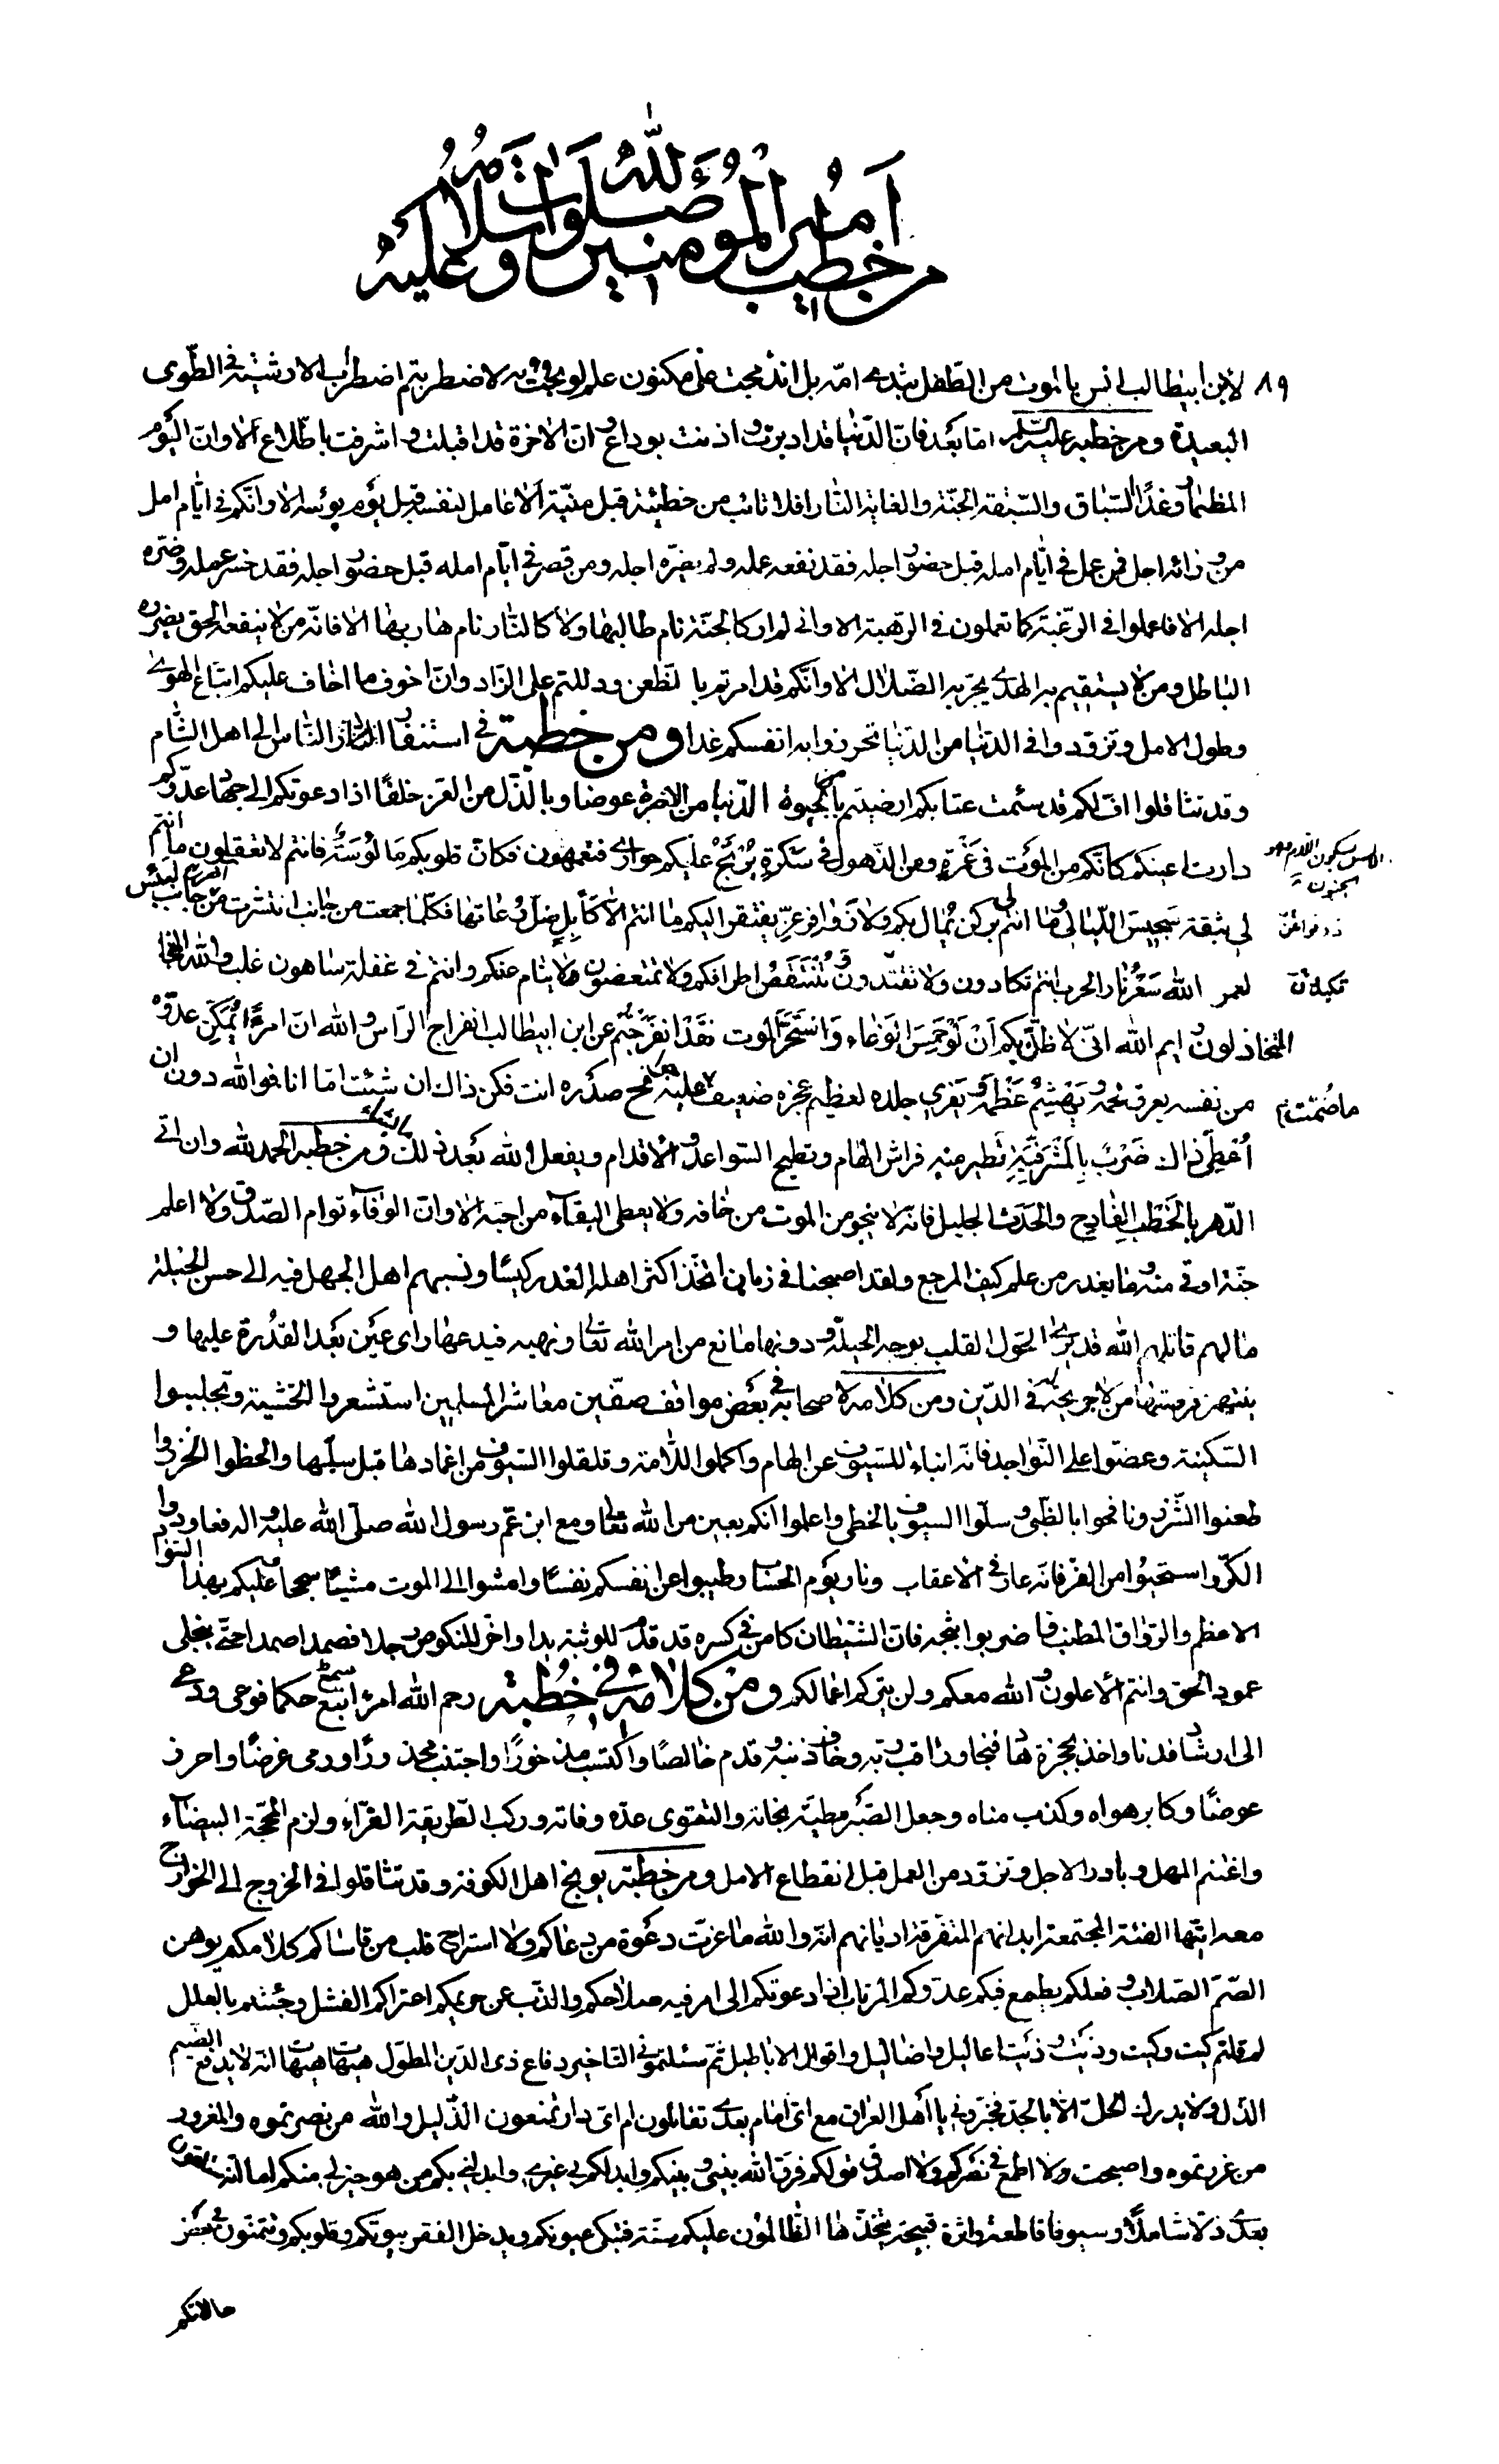 من خطب امير المؤمنين صلوات الله وسلامه عليه
٨٩ لابن ابيطالب انس بالموت من الطفل بثدى امّه بل اندمجت على مكنون علم لو بحت به لاضطربتم اضطراب الارشية فى الطّوى
البعيدة ومن خطبه عليه السلم امّا بعد فان الدّنيا قد ادبرت و اذنت بوداع و انّ الاخرة قد اقبلت و اشرفت باطّلاع الا وان اليوم
المظمار وغدًا السّباق والسّبقة الجنّة والغاية النّار افلا تائب من خطيئته قبل منيّته الا عامل لنفسه قبل يوم بوئسه الا وانّكم فى ايّام امل
من ورائه اجل فمن عمل فى ايّام امله قبل حضور اجله فقد نفعه عمله ولم يضرّه اجله ومن قصر فى ايّام امله قبل حضور اجله فقد خسر عمله وضرّه
اجله الا فاعملوا فى الرّغبة كما تعملون فى الرّهبة الا وانى لم ار كالجنّة نام طالبها ولا كالنّار نام هاربها الا فانّه من لا ينفعه الحق يضرّه
الباطل ومن لا يستقيم به الهدى يجرّ به الضّلال الا وانّكم قد امرتم بالظّعن ودللتم على الزّاد وانّ اخوف ما اخاف عليكم اتباع الهوى
وطول الامل وتزوّدوا فى الدنيا من الدّنيا ما تحرزوا به انفسكم غدا ومن خطبة فى استنفار النّاس الى اهل الشّام
وقد تثاقلوا افّ لكم قد سئمت عتابكم ارضيتم بالحيوة الدّنيا من الاخرة عوضا وبالذّل من العز خلفًا اذا دعوتكم الى جهاد عدوّكم
دارت اعينكم كانّكم من الموت فى غمرة ومن الذّهول فى سكرة يرتج عليكم حوارى فتعمهون فكانّ قلوبكم مألوسة فانتم لا تعقلون ما انتم
لى بثقة سجيس اللّيالى وما انتم بركن يمال بكم ولا زوافر عزّ يفتقر اليكم ما انتم الا كابل ضلّ رعاتها فكلّما جمعت من جانب انتشرت من جانب لبئس
لعمر الله سعر نار الحرب انتم تكادون ولا تكيدون و تنتقص اطرافكم ولا تمتعضون لا ينام عنكم وانتم فى غفلة ساهون غلب والله
المتخاذلون و ايم الله انّى لاظنّ بكم ان لو حمس الوغاء واستحرّ الموت قد انفرجتم عن ابن ابيطالب انفراج الرّاس والله انّ امرءًا يمكّن عدوّه
من نفسه يعرق لحمه و يهشم عظمه و يفرى جلده لعظيم عجزه ضعيف ما ضمّت عليه جوانح صدره انت فكن ذاك ان شئت امّا انا فو الله دون ان
أُعطى ذالك ضرب بالمشرفيّة تطير منه فراش الهام وتطيح السّواعد والاقدام ويفعل الله بعد ذلك ما يشاء ومن خطبه الحمد لله وان اتى
الدّهر بالخطب الفادح والحدث الجليل فانّه لا ينجو من الموت من خافه ولا يعطى البقاء من احبّه الا وانّ الوفاء توام الصّدق ولا اعلم
جنّة اوقى منه وما يغدر من علم كيف المرجع ولقد اصبحنا فى زمان اتّخذ اكثر اهله الغدر كيسًا ونسبهم اهل الجهل فيه الى حسن الحيلة
ما لهم قاتلهم الله قد يرى الحوّل القلب بوجه الحيلة و دونها مانع من امر الله تعالى و نهيه فيدعها راى عين بعد القدرة عليها و
ينتهز فرصتها من لا حريجة له فى الدّين ومن كلامه لاصحابه فى بعض مواقف صفّين معاشر المسلمين استشعروا الخشية وتجلببوا
السّكينة وعضّوا على النّواجد فانّه انباء للسّيوف عن الهام واكملوا اللّامة وقلقلوا السّيوف من اغمادها قبل سلّها والحظوا الخزر و
طعنوا الشّزر ونافحوا بالظّبى وسلّوا السيوف بالخطى واعلموا انّكم بعين من الله تعالى ومع ابن عمّ رسول الله صلّى الله عليه واله فعاودوا
الكرّ واستحيوا من الفرّ فانّه عار فى الاعقاب ونار يوم الحساب وطيبوا عن انفسكم نفسًا وامشوا الى الموت مشيًا سجحا عليكم بهذا السّواد
الاعظم والرّواق المطنب فاضربوا ثبجه فانّ الشّيطان كامن فى كسره قد قدّم للوثبة يدا واخّر للنكوص رجلا فصمدا صمدا حتّى ينجلى
عمود الحق وانتم الاعلون و الله معكم ولن يتركم اعمالكم ومن كلامه فى خطبته رحم الله امرءا سمع حكما فوعى ودعى
الى رشاد فدنا واخذ بحجزة هاد فنجا راقب ربّه وخاف ذنبه قدم خالصًا واكتسب مذخورًا واجتنب محذورًا ورمى غرضًا واحرز
عوضًا وكابر هواه وكذب مناه وجعل الصّبر مطيّة نجاته والتقوى عدّه وفاته وركب الطّريقة الغرّاء ولزم المحجّة البيضاء
واغتنم المهل وبادر الاجل وتزوّد من العمل قبل انقطاع الامل ومن خطبته يوبخ اهل الكوفة وقد تثاقلوا فى الخروج الى الخوارج
معه ايّتها الفئة المجتمعة ابدانهم المتفرّقة اديانهم انّه والله ما عزّت دعوة من دعاكم ولا استراح قلب من قاساكم كلامكم يوهن
الصّمّ الصّلاب و فعلكم يطمع فيكم عدوّكم المرتاب اذا دعوتكم الى امر فيه صلاحكم والذّب عن حريمكم اعتراكم الفشل وجئتم بالعلل
ثم قلتم كيت وكيت وذيت ذيت اعاليل واضاليل واقوال الاباطيل ثمّ سئلتمونى التّاخير دفاع ذى الدّين المطول هيهات هيهات انّه لا يدفع الضيم
الذّل ولا يدرك الحقّ الا بالجدّ فخبّرونى يا اهل العراق مع اىّ امام بعدى تقاتلون ام اىّ دار تمنعون الذّليل والله من نصرتموه والمغرور
من غررتموه واصبحت ولا اطمع فى نصركم ولا اصدّق قولكم فرّق الله بينى و بينكم وابدلكم بى غيرى وابدلنى بكم من هو خير لى منكم اما انّه ستلقون
بعدى ذلّا شاملًا و سيوفا قاطعة واثرة قبيحة يتّخذها الظّالمون عليكم سنّة فتبكى عيونكم ويدخل الفقر بيوتكم وقلوبكم وتتمنّون فى بعض
حالاتكم